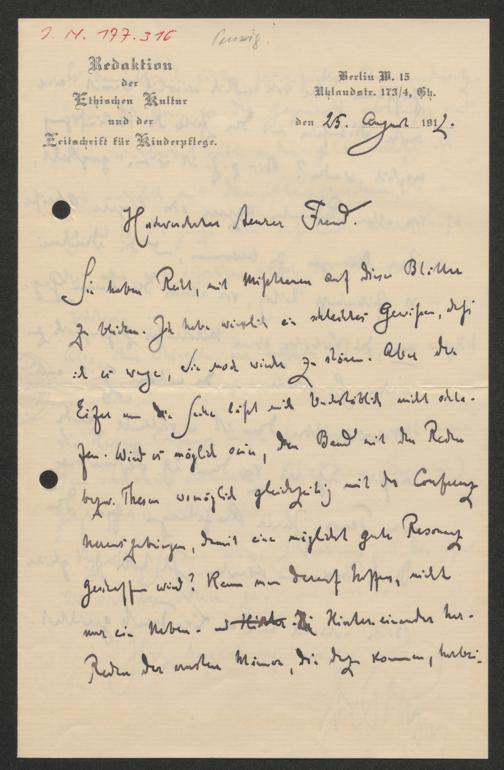 J. N. 177.316
Penzig.
Redaktion
der
Ethischen Kultur
und der
Zeitschrift für Kinderpflege.
Berlin W. 15
Uhlandstr. 173/4, Gh.
den 25. August 1912.
Hochverehrter teurer Freund.
Sie haben Recht, mit Mißtrauen auf diese Blätter
zu blicken. Ich habe wirklich ein schlechtes Gewissen, daß
ich es wage, Sie noch wieder zu stören. Aber der
Eifer um die Sache läßt mich buchstäblich nicht schla-
fen. Wird es möglich sein, den Band mit den Reden
bezw. Thesen womöglich gleichzeitig mit der Conferenz
herauszubringen, damit eine möglichst gute Resonanz
geschaffen wird? Kann man darauf hoffen, nicht
nur ein Neben- und Hintereinander her-
Reden der ernsten Männer, die dazu kommen, herbei-